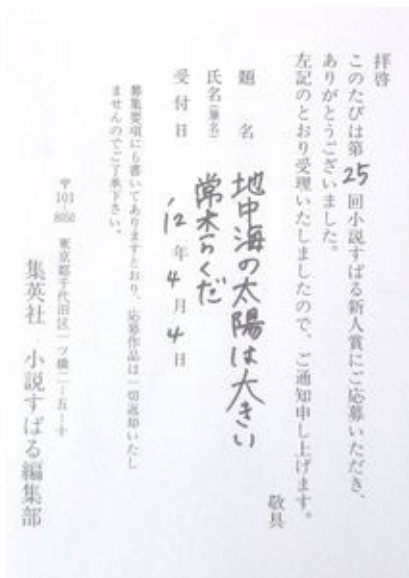 拝啓
このたびは第25回小説すばる新人賞にご応募いただき、
ありがとうございました。
左記のとおり受理いたしましたので、ご通知申し上げます。
敬具
題名 地中海の太陽は大きい
氏名(筆名) 常木らくだ
受付日 '12年4月4日
募集要項にも書いてありますとおり、応募作品は一切返却いたし
ませんのでご了承下さい。
〒101-8050 東京都千代田区一ツ橋二-五-十
集英社 小説すばる編集部